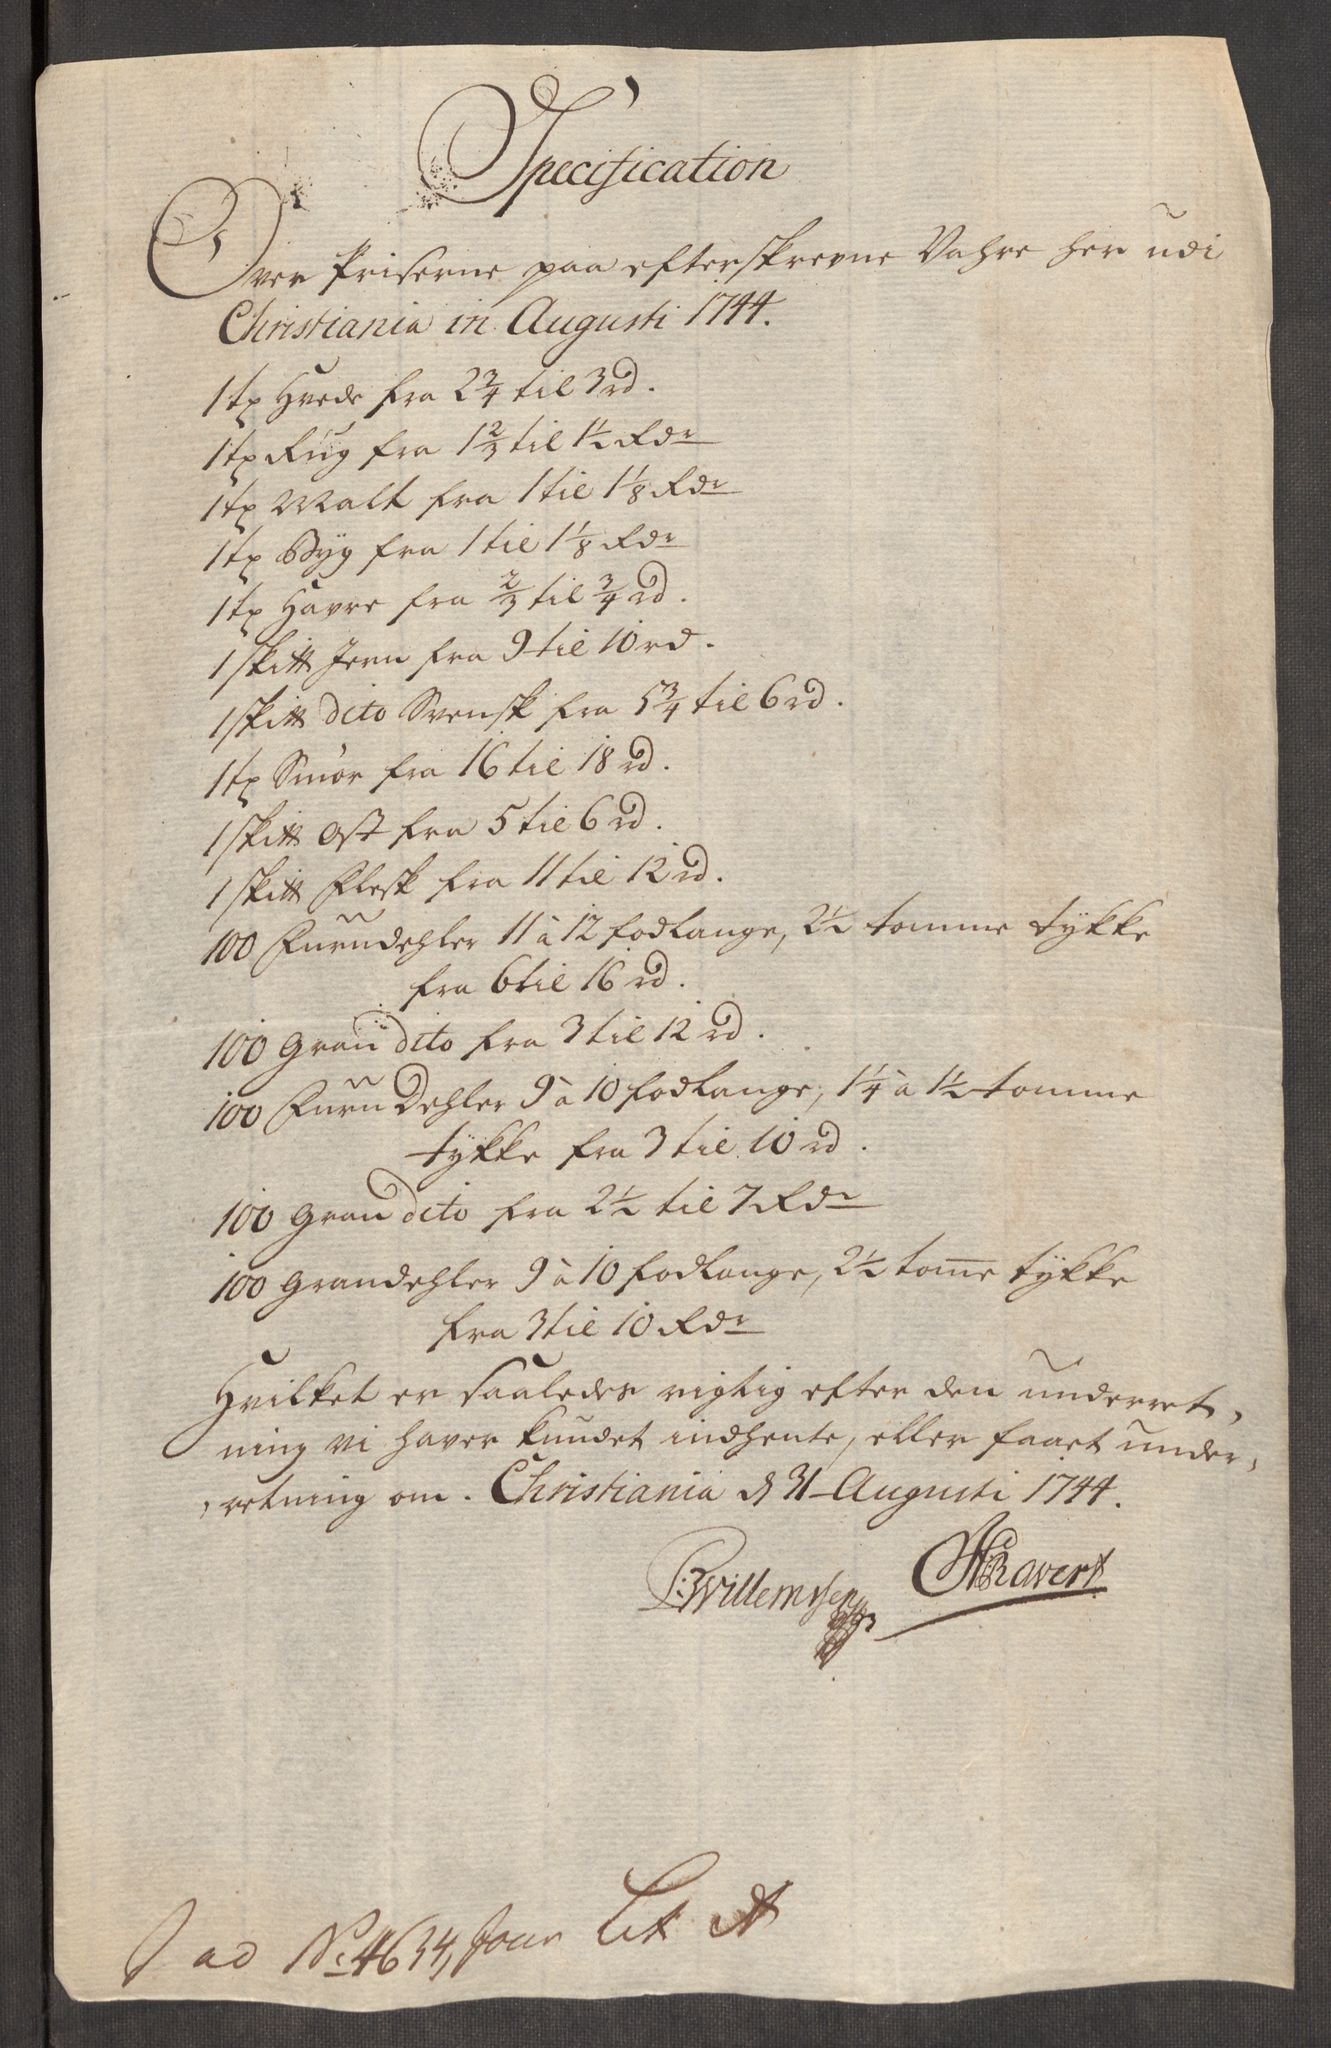 Specification
Over Priserne paa efterskrevne Vahre her udi
Christiania in Augusti 1744.
1 tp Hvede fra 2 3/4 til 3 rd.
1 tp Rug fra 1 2/3 til 1 1/2 Rdr
1 tp Malt fra 1 til 1 1/8 Rdr
1 tp Byg fra 1 til 1 1/8 Rdr
1 tp Havre fra 2/3 til 3/4 rd.
1 skitt Jern fra 9 til 10 rd.
1 skitt dito Svensk fra 5 3/4 til 6 rd.
1 tp Smör fra 16 til 18 rd.
1 skitt Ost fra 5 til 6 rd.
1 skitt Flesk fra 11 til 12 rd.
100 Furudehler 11 à 12 fodlange, 2 1/2 tomme tykke
fra 6 til 16 rd.
100 Gran dito fra 3 til 12 rd.
100 Furu Dehler 9 à 10 fodlange, 1 1/4 à 1 1/2 tomme
tykke fra 3 til 10 rd.
100 Gran dito fra 2 1/2 til 7 Rdr
100 Grandehler 9 à 10 fodlange, 2 1/2 tom̅e tykke
fra 3 til 10 Rdr
Hvilket er saaledes rigtig efter den underret,
ning vi haver kundet indhente, eller faaet under,
,retning om. Christiania d 31 Augusti 1744.
P: Willemsen Ravert
ad No: 4634, Jour Lit A